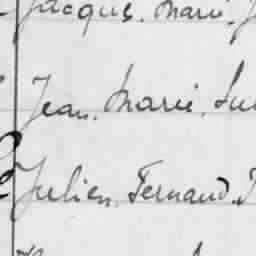 Jacques. Marie.
Jean. Marie.
Julien. Fernand.